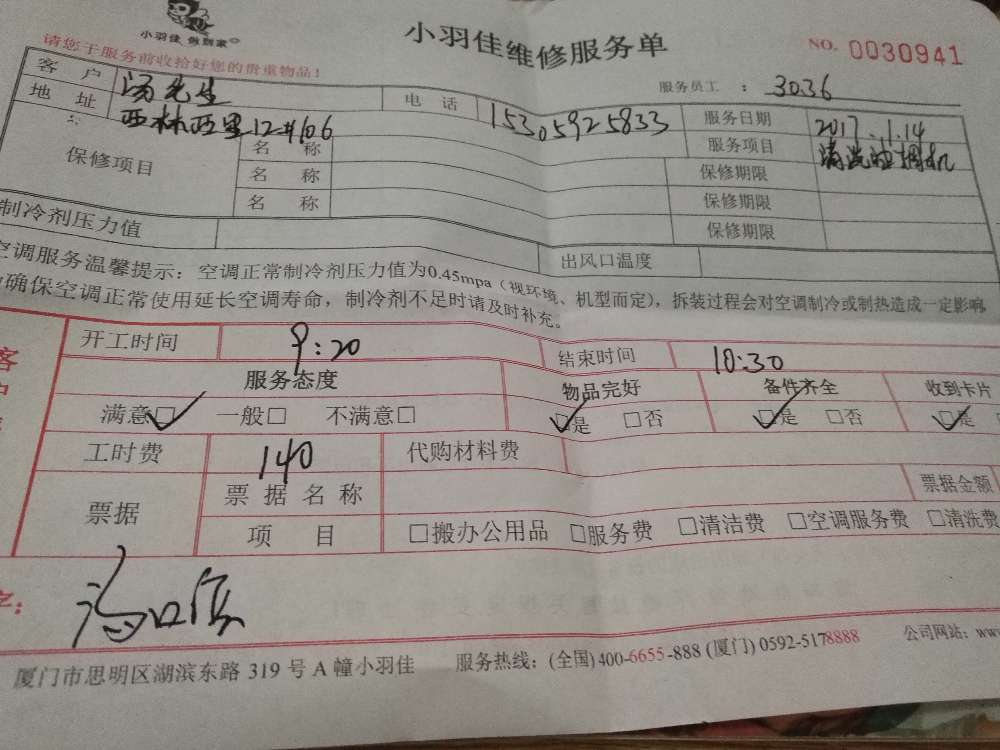 小羽佳 做到家
小羽佳维修服务单
NO. 0030941
请您于服务前收拾好您的贵重物品!
服务员工 : 3036
客户 汤先生 电话 15305925833 服务日期 2017.1.14
地址 西林西里12#106 服务项目 清洗空调机
保修项目 名称 保修期限
名称 保修期限
名称 保修期限
制冷剂压力值 出风口温度
空调服务温馨提示:空调正常制冷剂压力值为0.45mpa(视环境、机型而定),拆装过程会对空调制冷或制热造成一定影响
确保空调正常使用延长空调寿命,制冷剂不足时请及时补充。
客户
开工时间 9:20 结束时间 10:30
服务态度 物品完好 备件齐全 收到卡片
满意□ 一般□ 不满意□ □是 □否 □是 □否 □是
工时费 140 代购材料费
票据 票据名称 票据金额
项目 □搬办公用品 □服务费 □清洁费 □空调服务费 □清洗费
字:
厦门市思明区湖滨东路 319 号 A 幢小羽佳 服务热线:(全国)400-6655-888 (厦门) 0592-5178888 公司网站:www